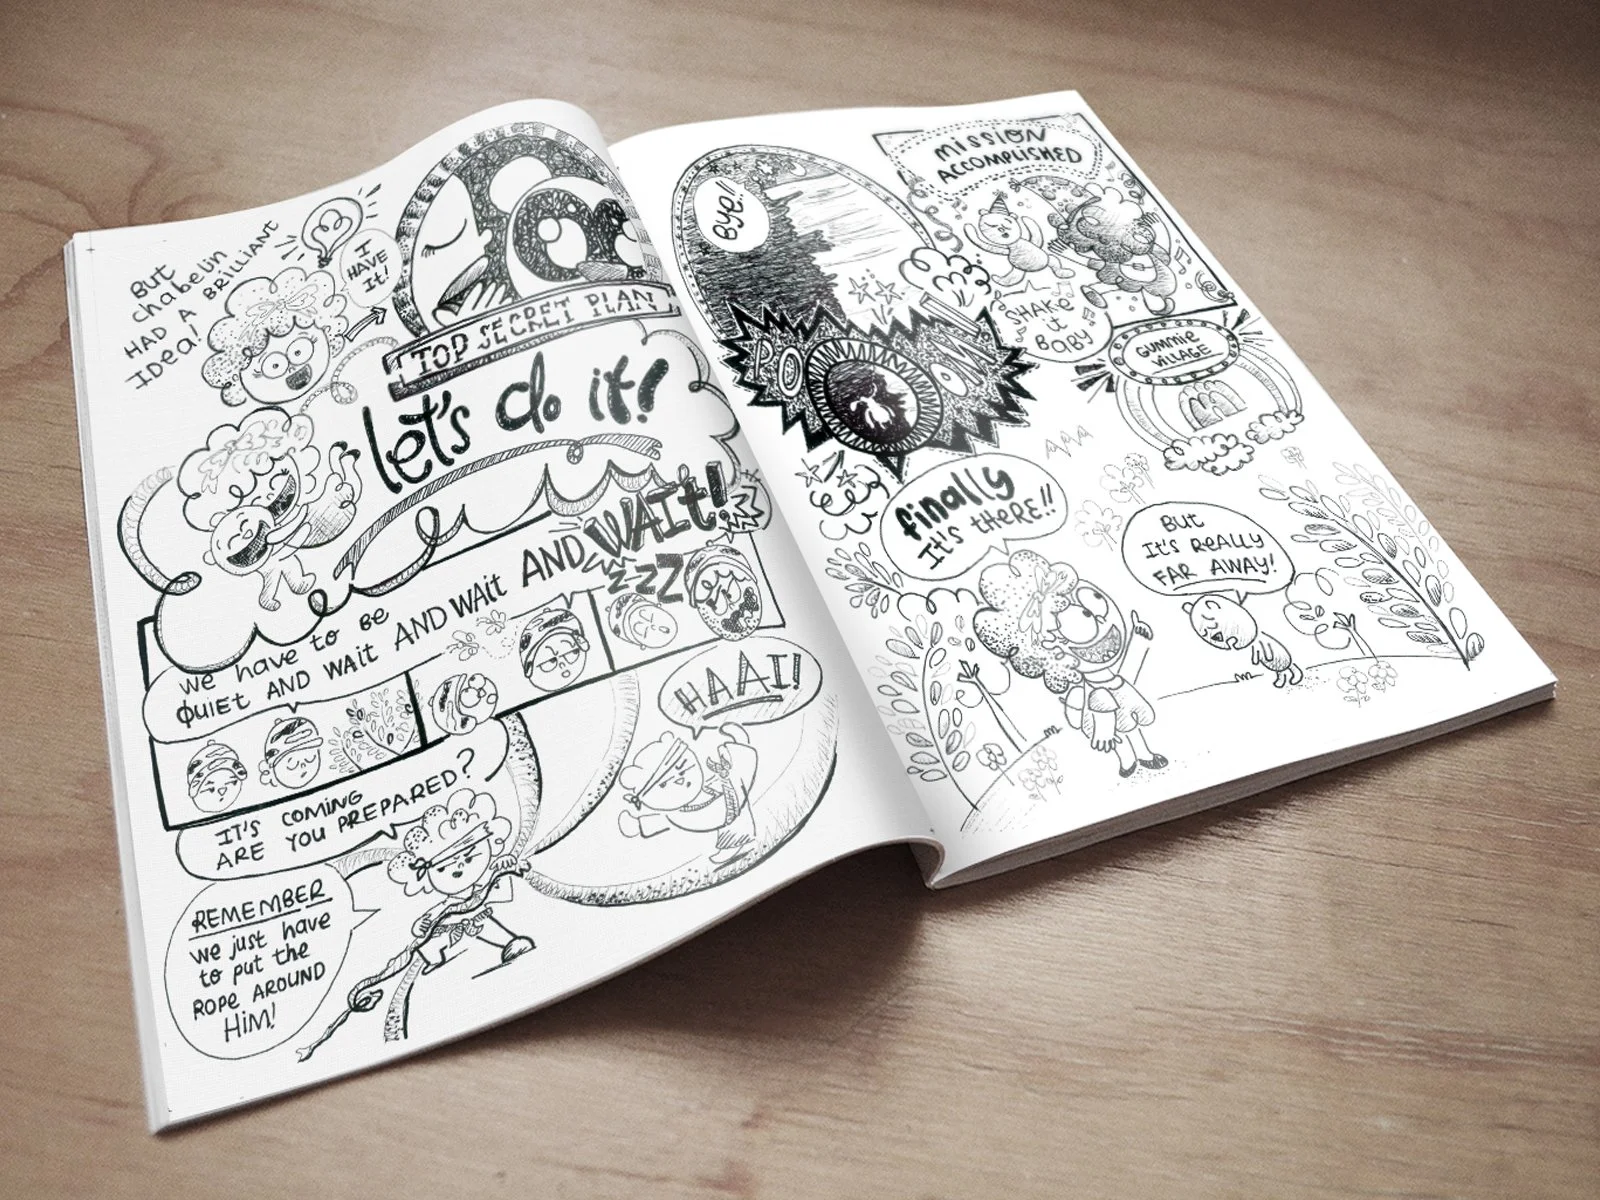 But
chabelin
HAD A BRILLIANT
IDea!
I
HAVE
It!
TOP SECRET PLAN
let's do it!
we have to be
QUIET AND WAit AND WAit AND WAIt!
zzZ
IT'S COMING
ARE YOU PREPARED?
HAAI!
REMEMBER
we just have
to put the
ROPE AROUND
HiM!
BYE!!
BOOOM
MISSION
ACCOMPLISHED
SHAKE
it
BABY
GUMMIE
VILLAGE
finally
It's tHERE!!
But
It's REALLY
FAR AWAY!